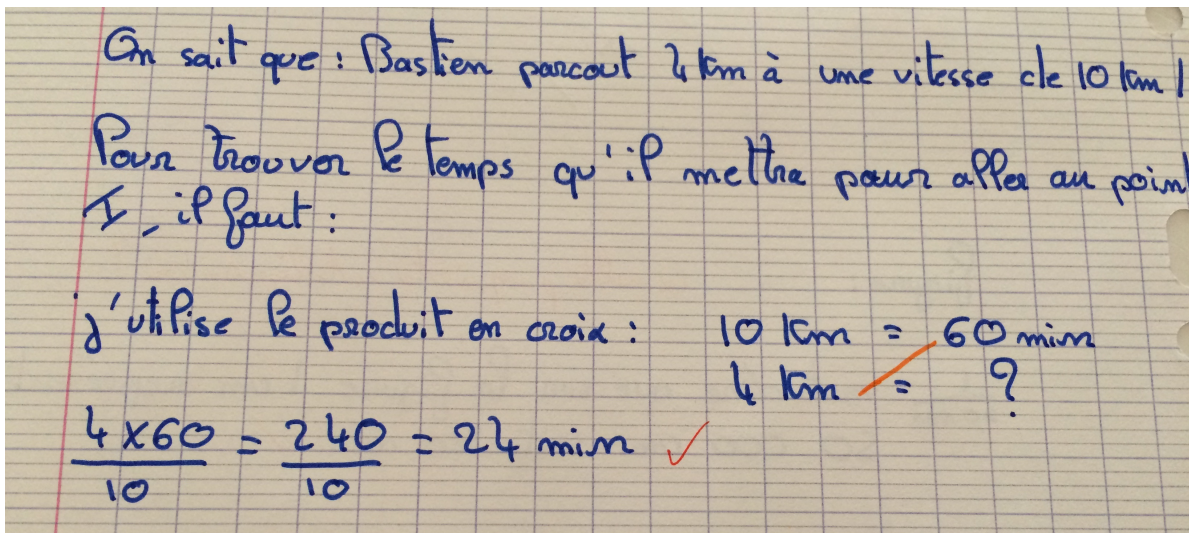 On sait que : Bastien parcout 4 km à une vitesse de 10 km/
Pour trouver le temps qu'il mettra pour aller au point
I, il faut :
j'utilise le produit en croix : 10 Km = 60 min
4 Km = ?
4 x 60 / 10 = 240 / 10 = 24 min ✓